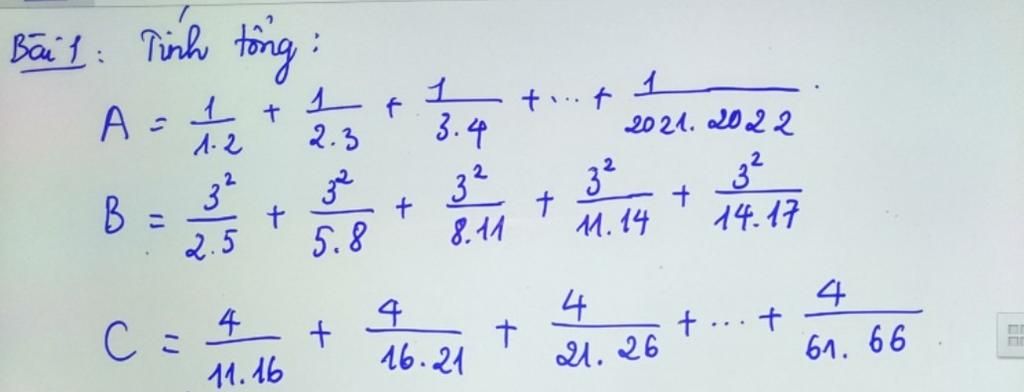 Bài 1: Tính tổng:
A = 1/1.2 + 1/2.3 + 1/3.4 + ... + 1/2021.2022.
B = 3²/2.5 + 3²/5.8 + 3²/8.11 + 3²/11.14 + 3²/14.17
C = 4/11.16 + 4/16.21 + 4/21.26 + ... + 4/61.66